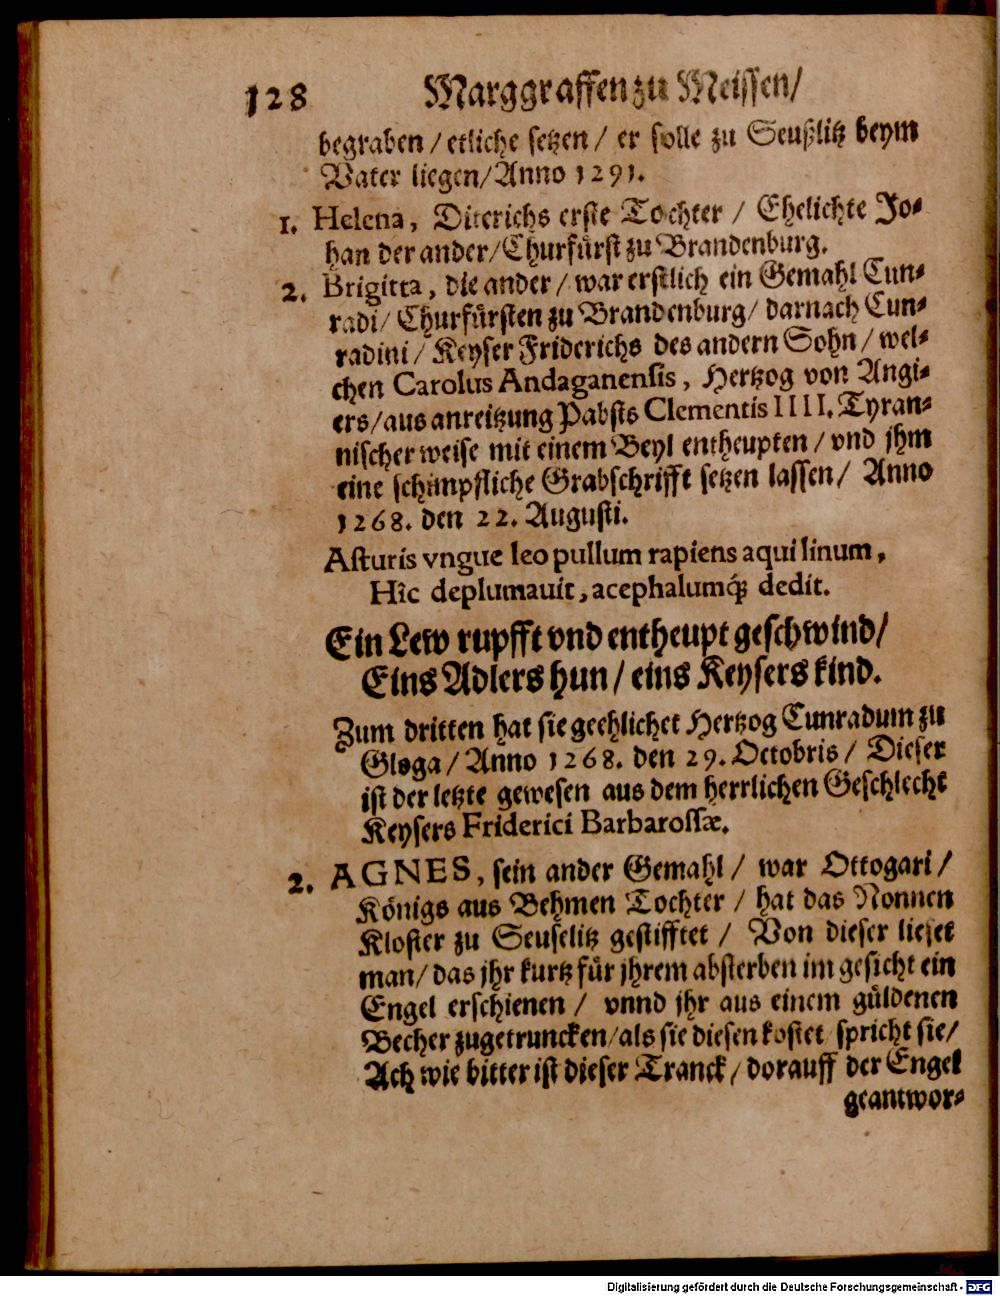 128 Marggraffen zu Meissen/
begraben / etliche setzen / er solle zu Seußlitz beym
Vater liegen/ Anno 1291.
1. Helena, Diterichs erste Tochter / Ehelichte Jo-
han der ander/ Churfürst zu Brandenburg.
2. Brigitta, die ander / war erstlich ein Gemahl Cun-
radi/ Churfürsten zu Brandenburg/ darnach Cun-
radini / Keyser Friderichs des andern Sohn / wel-
chen Carolus Andaganensis, Hertzog von Angi-
ers/ aus anreitzung Pabsts Clementis IIII. Tyran-
nischer weise mit einem Beyl entheupten / vnd jhm
eine schimpffliche Grabschrifft setzen lassen/ Anno
1268. den 22. Augusti.
Asturis vngue leo pullum rapiens aquilinum,
Hîc deplumauit, acephalumq́; dedit.
Ein Lew rupfft vnd entheupt geschwind/
Eins Adlers hun / eins Keysers kind.
Zum dritten hat sie geehlichet Hertzog Cunradum zu
Gloga / Anno 1268. den 29. Octobris / Dieser
ist der letzte gewesen aus dem herrlichen Geschlecht
Keysers Friderici Barbarossæ.
2. AGNES, sein ander Gemahl / war Ottogari /
Königs aus Behmen Tochter / hat das Nonnen
Kloster zu Seuselitz gestifftet / Von dieser lieset
man/ das jhr kurtz für jhrem absterben im gesicht ein
Engel erschienen / vnnd jhr aus einem güldenen
Becher zugetruncken/ als sie diesen kostet spricht sie/
Ach wie bitter ist dieser Tranck / dorauff der Engel
geantwor-
Digitalisierung gefördert durch die Deutsche Forschungsgemeinschaft - DFG